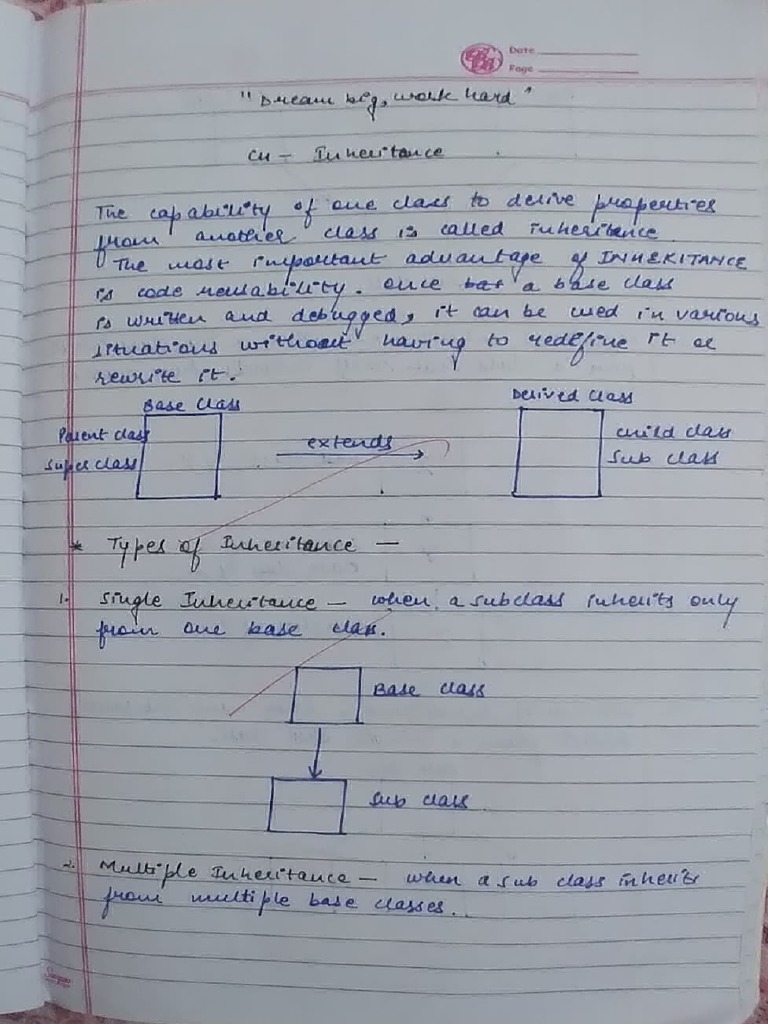 Date
Page
"Dream big, work hard"
CH - Inheritance
The capability of one class to derive properties
from another class is called inheritance
The most important advantage of INHERITANCE
is code reusability. once a base class
is written and debugged, it can be used in various
situations without having to redefine it or
rewrite it.
Base Class
Derived Class
Parent class
extends
child class
Super class
Sub class
* Types of Inheritance —
1. Single Inheritance — when a subclass inherits only
from one base class.
Base class
Sub class
2. Multiple Inheritance — when a sub class inherits
from multiple base classes.